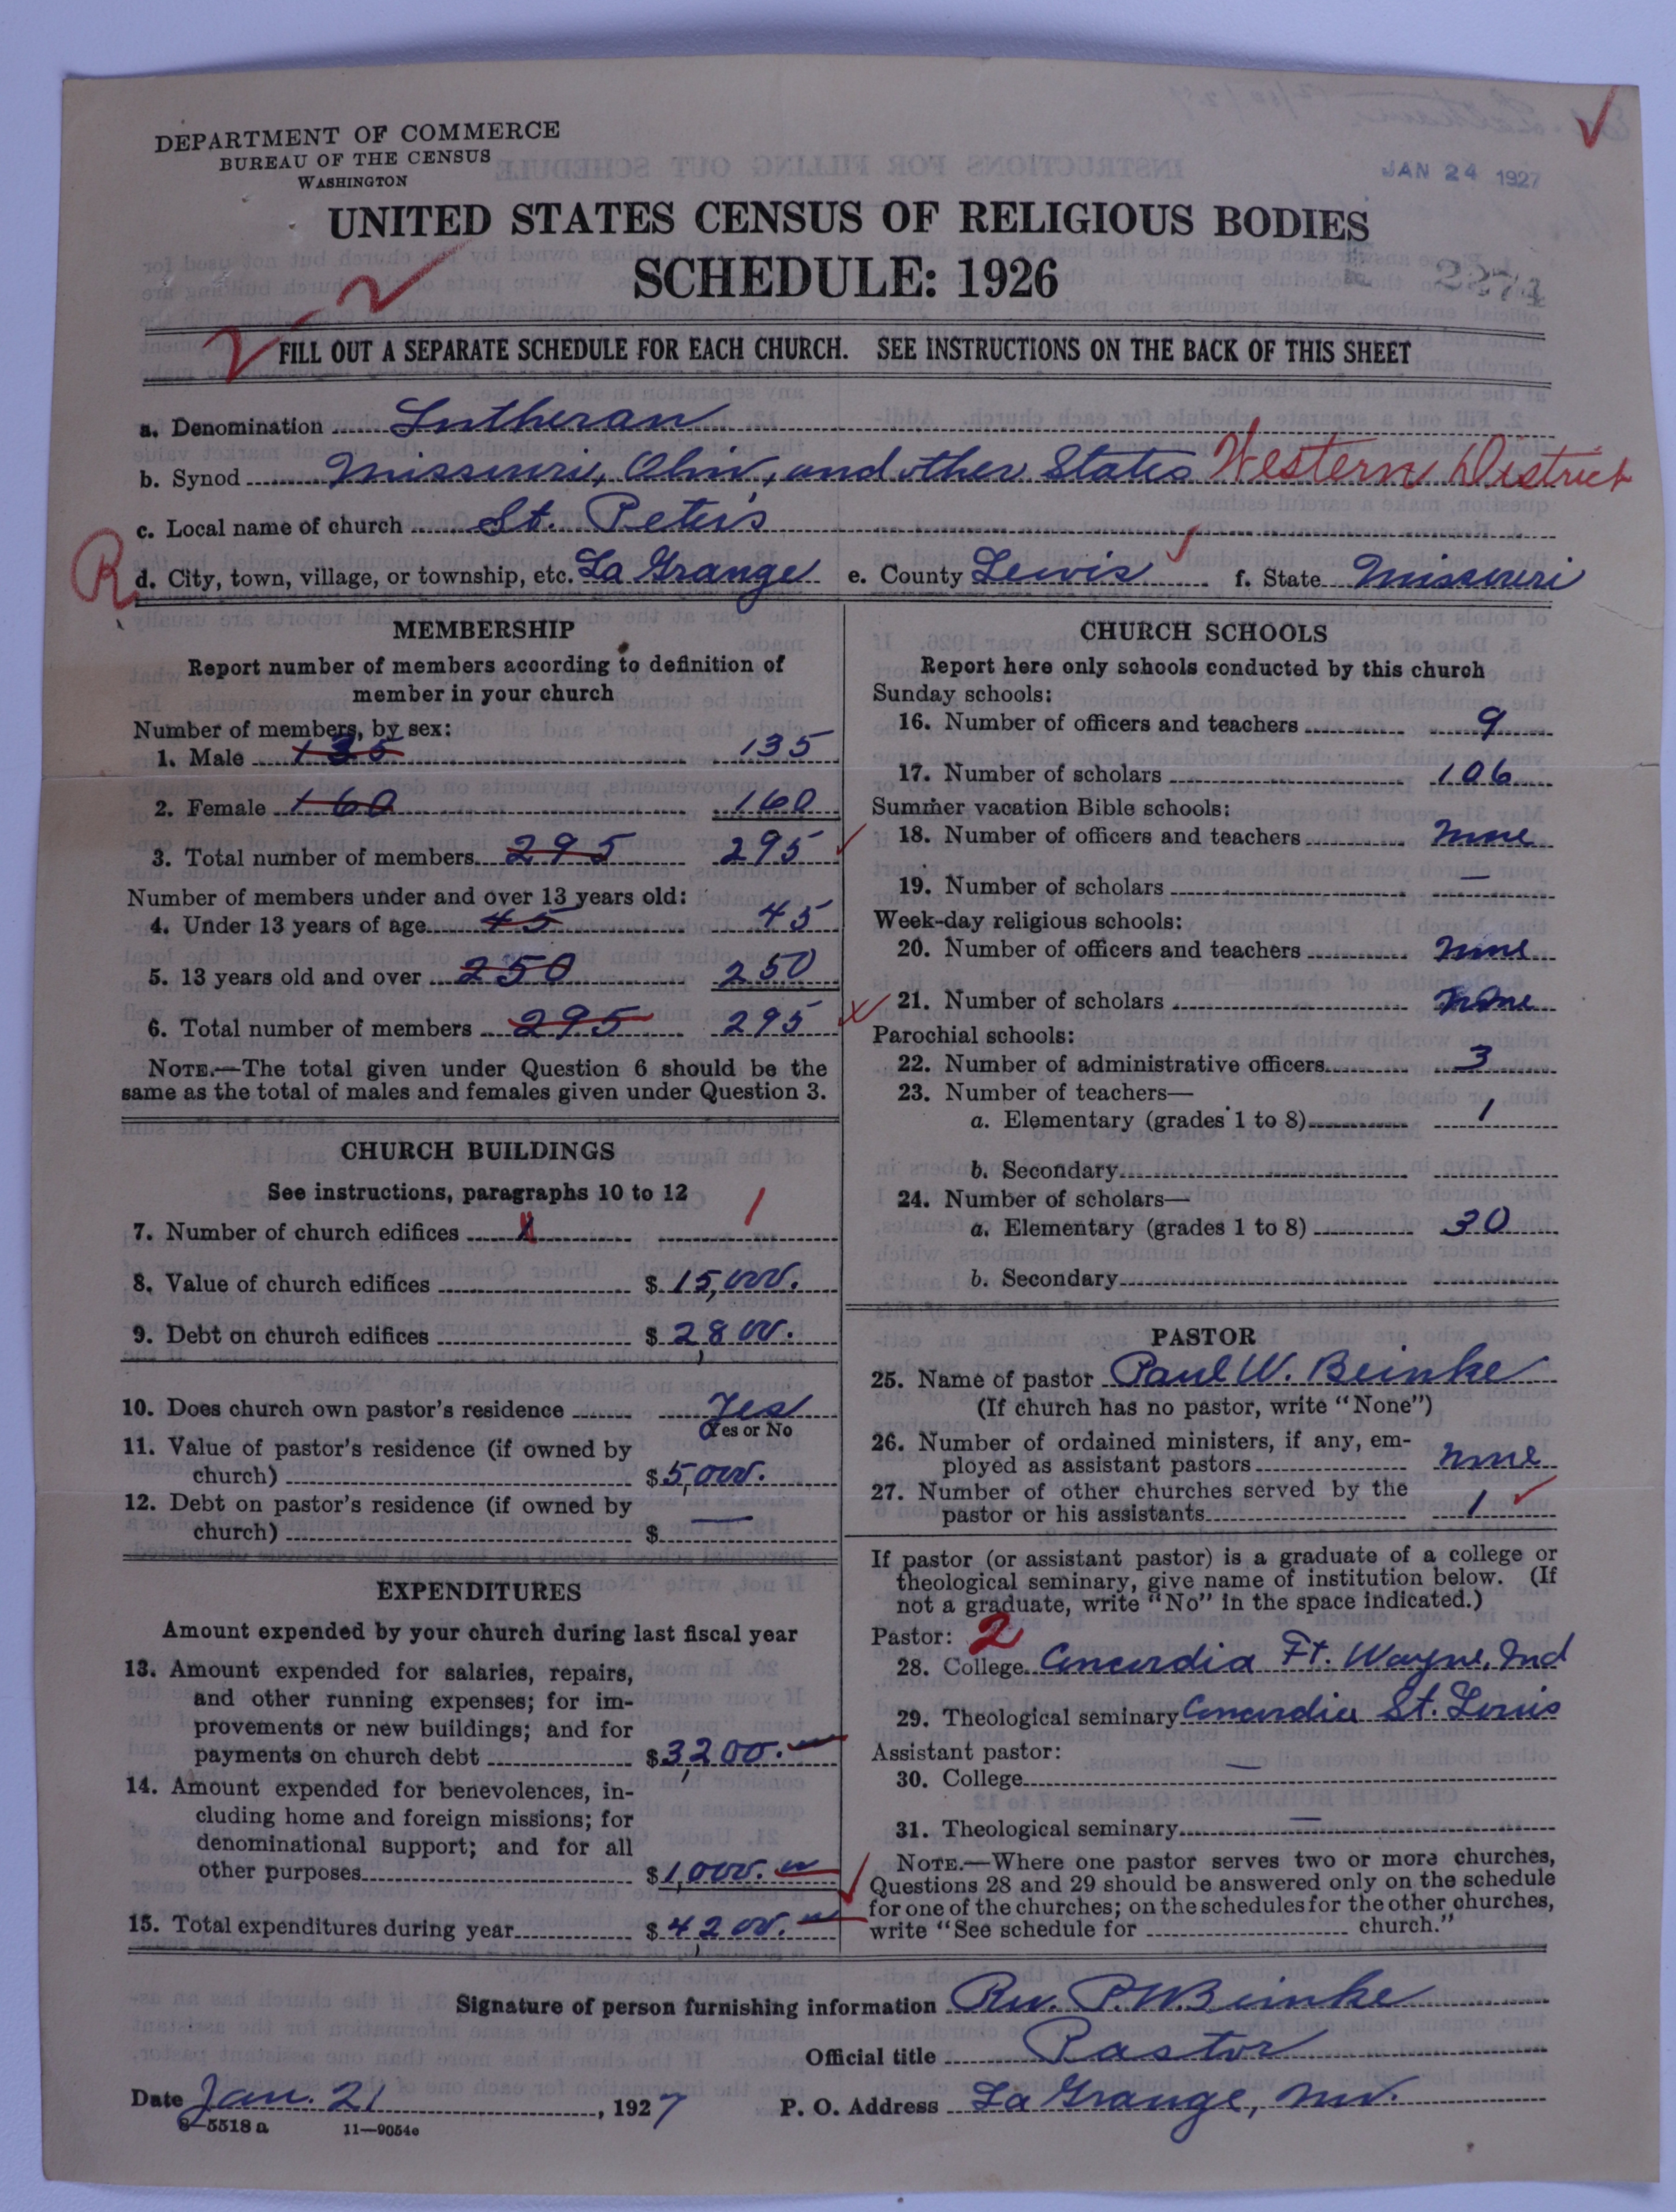 DEPARTMENT OF COMMERCE
BUREAU OF THE CENSUS
WASHINGTON
JAN 24 1927
UNITED STATES CENSUS OF RELIGIOUS BODIES
SCHEDULE: 1926
2274
2-2
FILL OUT A SEPARATE SCHEDULE FOR EACH CHURCH. SEE INSTRUCTIONS ON THE BACK OF THIS SHEET
a. Denomination Lutheran
b. Synod Missouri, Ohio, and other States Western District
c. Local name of church St. Peter's
R d. City, town, village, or township, etc. La Grange e. County Lewis f. State Missouri
MEMBERSHIP
Report number of members according to definition of
member in your church
Number of members, by sex:
1. Male 135 135
2. Female 160 160
3. Total number of members 295 295
Number of members under and over 13 years old:
4. Under 13 years of age 45 45
5. 13 years old and over 250 250
6. Total number of members 295 295
NOTE.—The total given under Question 6 should be the
same as the total of males and females given under Question 3.
CHURCH BUILDINGS
See instructions, paragraphs 10 to 12
7. Number of church edifices 1 1
8. Value of church edifices $ 15,000.
9. Debt on church edifices $ 2,800.
10. Does church own pastor's residence Yes
Yes or No
11. Value of pastor's residence (if owned by
church) $ 5,000.
12. Debt on pastor's residence (if owned by
church) $ —
EXPENDITURES
Amount expended by your church during last fiscal year
13. Amount expended for salaries, repairs,
and other running expenses; for im-
provements or new buildings; and for
payments on church debt $ 3,200.
14. Amount expended for benevolences, in-
cluding home and foreign missions; for
denominational support; and for all
other purposes $ 1,000.
15. Total expenditures during year $ 4,200.
CHURCH SCHOOLS
Report here only schools conducted by this church
Sunday schools:
16. Number of officers and teachers 9
17. Number of scholars 106
Summer vacation Bible schools:
18. Number of officers and teachers none
19. Number of scholars —
Week-day religious schools:
20. Number of officers and teachers none
21. Number of scholars none
Parochial schools:
22. Number of administrative officers 3
23. Number of teachers—
a. Elementary (grades 1 to 8) 1
b. Secondary
24. Number of scholars—
a. Elementary (grades 1 to 8) 30
b. Secondary
PASTOR
25. Name of pastor Paul W. Beinke
(If church has no pastor, write "None")
26. Number of ordained ministers, if any, em-
ployed as assistant pastors none
27. Number of other churches served by the
pastor or his assistants 1
If pastor (or assistant pastor) is a graduate of a college or
theological seminary, give name of institution below. (If
not a graduate, write "No" in the space indicated.)
Pastor: 2
28. College Concordia Ft. Wayne, Ind
29. Theological seminary Concordia St. Louis
Assistant pastor:
30. College —
31. Theological seminary —
NOTE.—Where one pastor serves two or more churches,
Questions 28 and 29 should be answered only on the schedule
for one of the churches; on the schedules for the other churches,
write "See schedule for church."
Signature of person furnishing information Rev. P.W. Beinke
Official title Pastor
Date Jan. 21, 1927 P. O. Address La Grange, Mo.
8—5518a 11—9054e